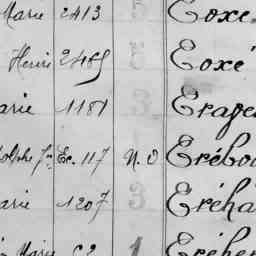 Marie 2413 5 Coxe
Henri 2485 5 Coxé
arie 1181 3 Crape
olphe Jn Ec. 117 N. O Crébo
arie 1207 3 Créha
Marie 1 Créhe